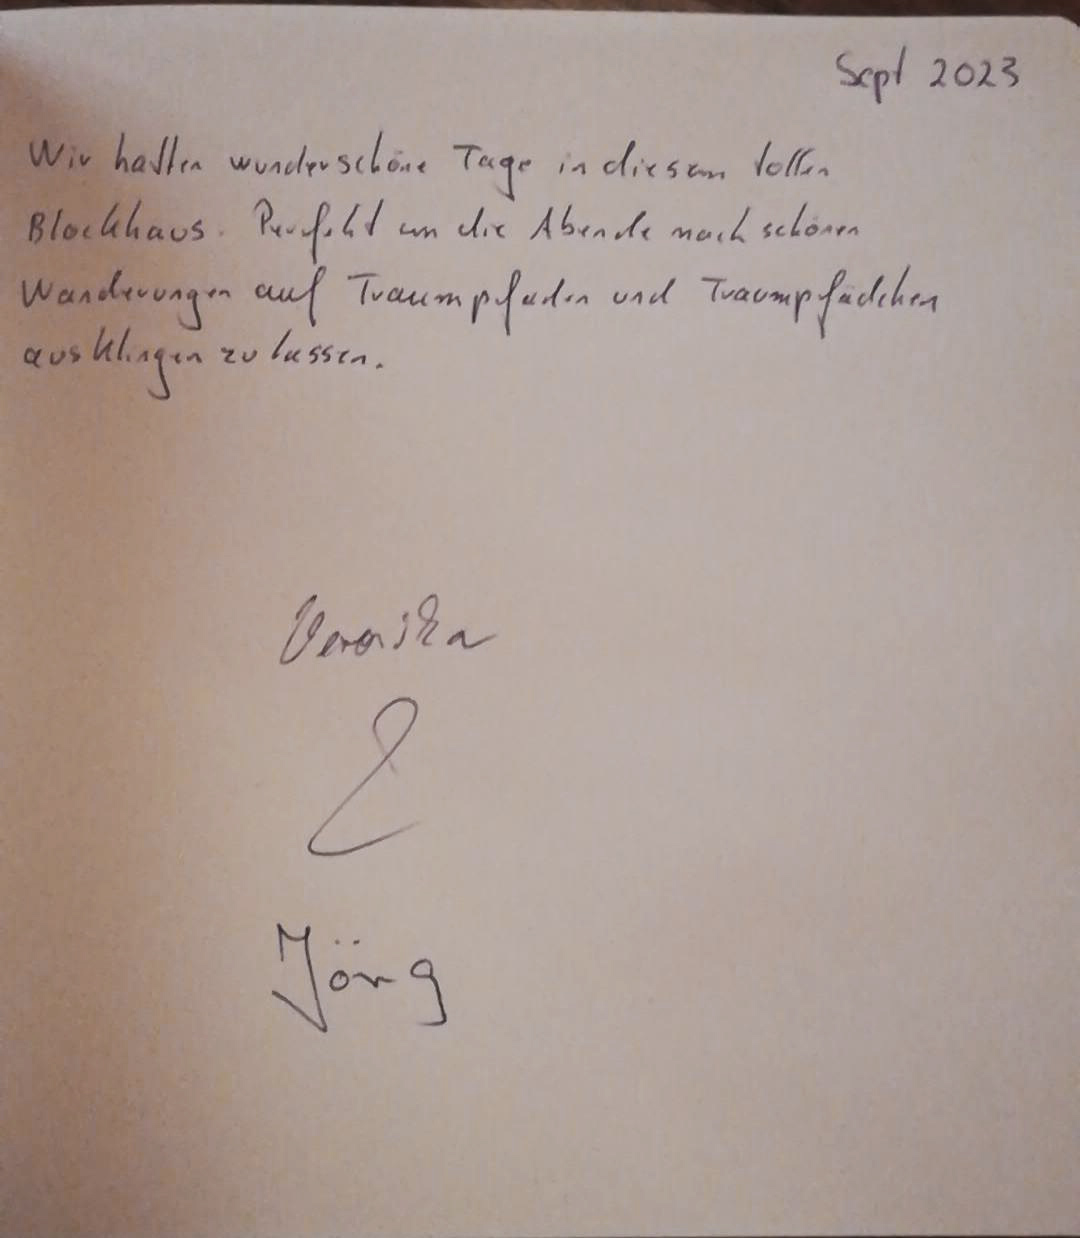 Sept 2023
Wir hatten wunderschöne Tage in diesem tollen
Blockhaus. Perfekt um die Abende nach schönen
Wanderungen auf Traumpfaden und Traumpfädchen
ausklingen zu lassen.
Veronika
&
Jörg